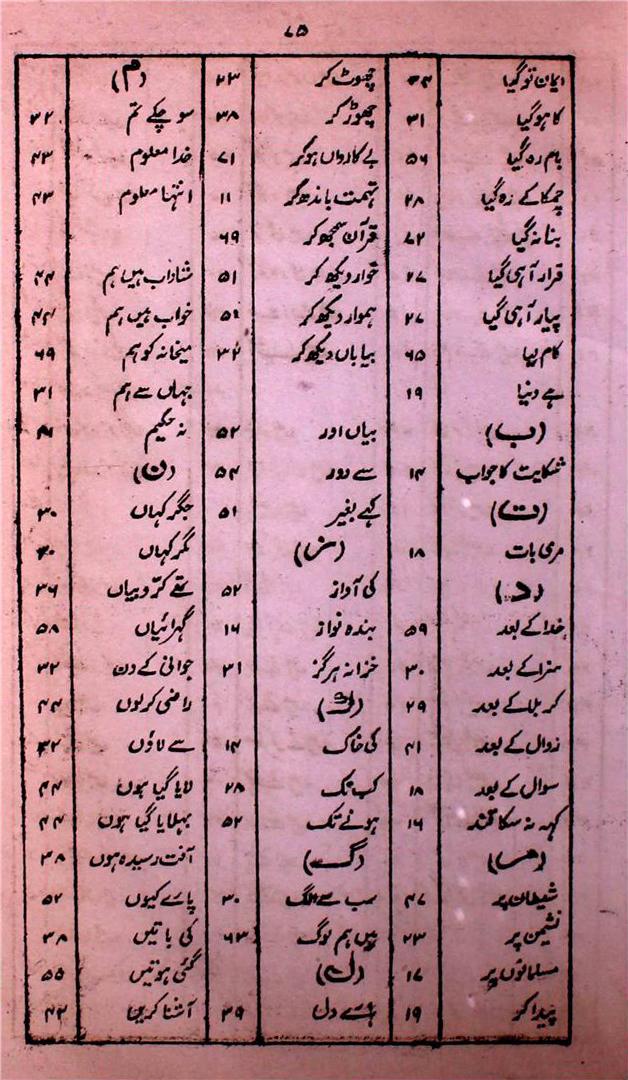 ۷۵
ایمان تو گیا
کا ہو گیا ۳۱
بام رہ گیا ۵۶
چمکا کے رہ گیا ۲۸
بنا نہ گیا ۷۲
قرار آ ہی گیا ۲۷
پیار آ ہی گیا ۲۷
کام پیا ۶۵
ہے دنیا ۱۹
(ب)
شکایت کا جواب ۱۴
(ت)
مری بات ۱۸
(د)
خدا کے بعد ۵۹
سزا کے بعد ۳۰
کربلا کے بعد ۲۹
زوال کے بعد ۴۱
سوال کے بعد ۱۸
کہہ نہ سکا قند ۱۶
(ر)
شیطان پر ۴۷
نشیمن پر ۲۳
مسلمانوں پر ۱۷
پیدا کر ۱۹
چھوٹ کر ۲۳
چھوڑ کر ۳۸
بے کارواں ہو کر ۷۱
تہمت باندھ کر ۱۱
قرآن سمجھ کر ۶۹
خوار دیکھ کر ۵۱
ہموار دیکھ کر ۵۱
بیاباں دیکھ کر ۳۲
بیاں اور ۵۲
سے دور ۵۴
کہے بغیر ۵۱
(ز)
کی آواز ۵۲
بندہ نواز ۱۶
خزانہ ہرگز ۳۱
(ک)
کی خاک ۱۴
کب تک ۲۸
ہونے تک ۵۲
(گ)
سب سے الگ ۳۰
ہیں ہم لوگ ۶۳
(ل)
ہارے دل ۳۹
(م)
سو چکے تم ۳۲
خدا معلوم ۴۳
انتہا معلوم ۴۳
شاداب ہیں ہم ۴۴
خواب ہیں ہم ۴۴
میخانہ کو ہم ۶۹
جہاں سے ہم ۳۱
نہ حکیم
(ن)
جگر کہاں ۳۰
مگر کہاں ۳۰
تتے کروبیاں ۳۶
گہرائیاں ۵۸
جوانی کے دن ۳۲
راضی کر لوں ۴۴
سے لاؤں ۳۲
لایا گیا ہوں ۴۴
بہلایا گیا ہوں ۴۴
آفت رسیدہ ہوں ۳۸
پارے کیوں ۵۲
کی باتیں ۳۸
گئی ہوتیں ۵۵
آشنا کریں ۴۲